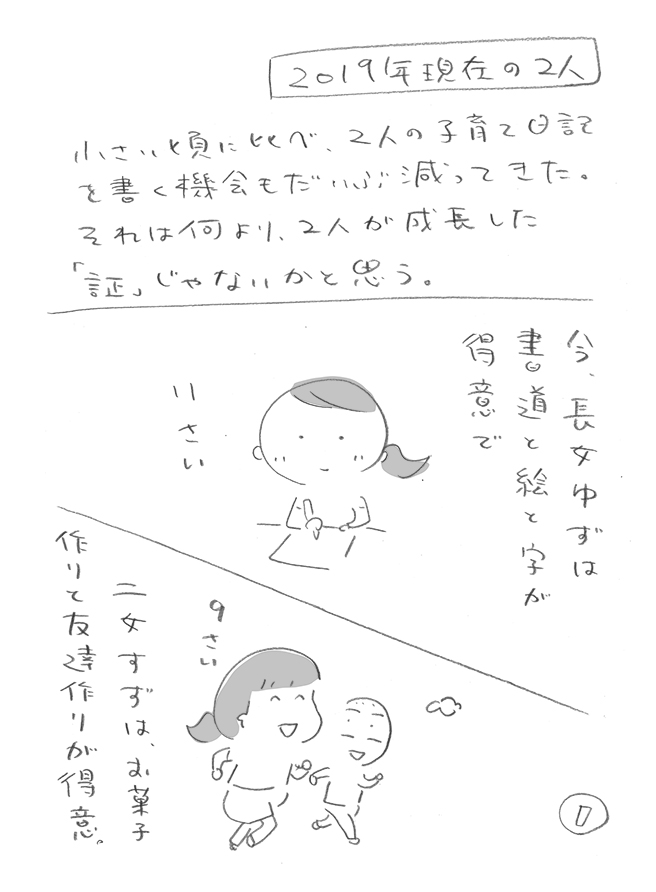 2019年現在の2人
小さい頃に比べ、2人の子育て日記
を書く機会もだいぶ減ってきた。
それは何より、2人が成長した
「証」じゃないかと思う。
今、長女ゆずは
書道と絵と字が
得意で
11さい
9さい
二女すずは、お菓子
作りと友達作りが得意。